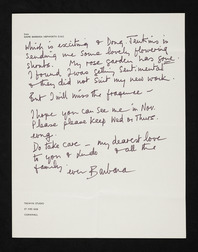 which is exciting & Doug Jenkins is
sending me some lovely flowering
shrubs. My rose garden has some
I found I was getting sentimental
& they did not suit my new work.
But I will miss the fragrance —
I hope you can see me in Nov.
Please please keep Wed or Thurs.
Do take care — my dearest love
to you & & all the
family
ever Barbara
TREWYN STUDIO
ST IVES
CORNWALL